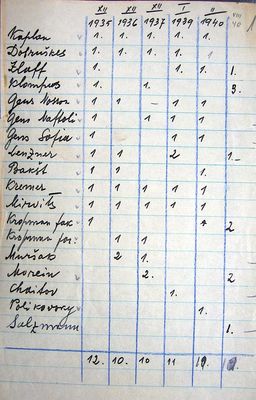 XII XII XII I II VIII
1935 1936 1937 1939 1940 40
Kaplan 1. 1. 1. 1.
Dotruskes 1. 1. 1. 1. 1
Zlaff 1. 1. 1. 1.
Klompus 1. 1. 3.
Gens Nosson 1 1 – 1 1
Gens Naftoli 1 1 1 1
Gens Sofia 1 1 1 1 1
Lenzner 1 1 2 1.–
Bakst 1 1 1.
Kremer 1 1 1 1 1
Mirvits 1 1 1 1 1
Kropman Jak. 1 2
Kropman 1 1
Muršak 2 1.
Morein 2. 2
Chaitov 1.
Polikovsky 1.
Salzmann 1.
12. 10. 10 11